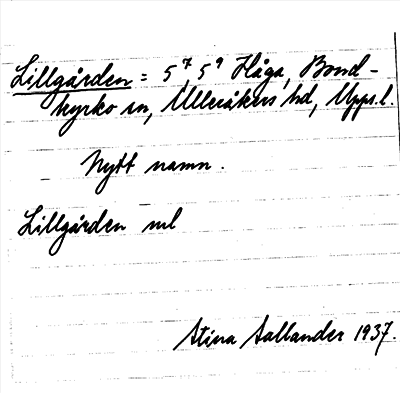 Lillgården = 5⁷, 5⁹ Håga, Bond-
kyrko sn, Ulleråkers hd, Upps.l.
Nytt namn.
Lillgården ml
Stina Sallander 1937.